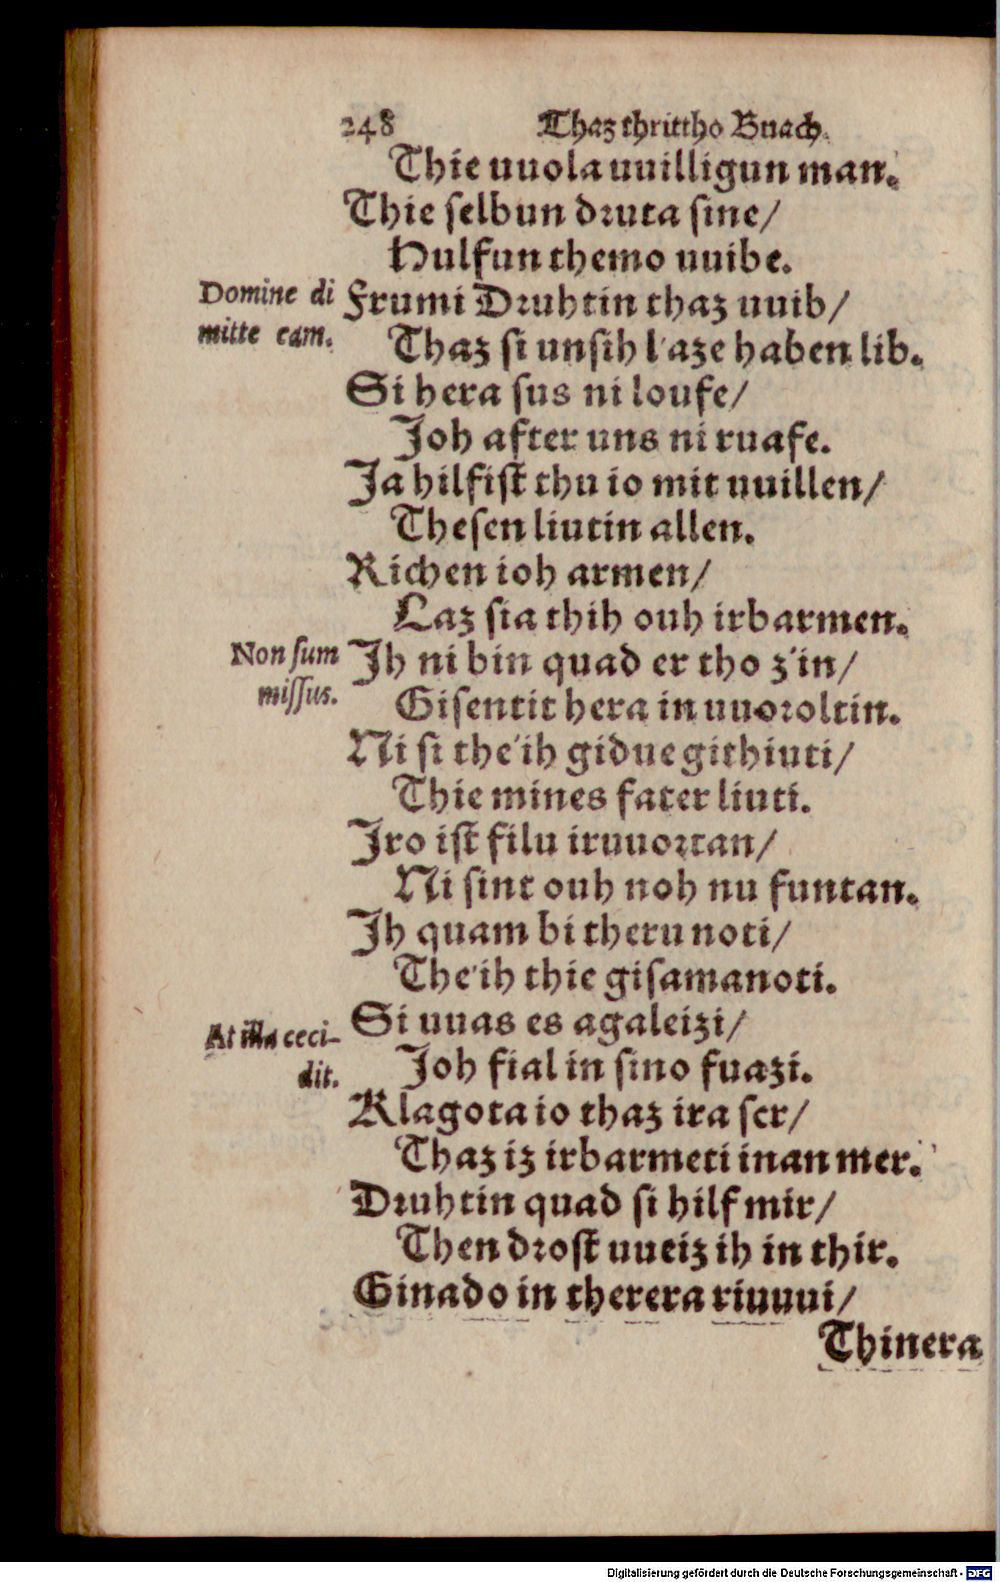 248 Thaz thrittho Buach.
Thie uuola uuilligun man.
Thie selbun druta sine/
Hulfun themo uuibe.
Domine di
mitte eam.
Frumi Druhtin thaz uuib/
Thaz si unsih l'aze haben lib.
Si hera sus ni loufe/
Joh after uns ni ruafe.
Ja hilfist thu io mit uuillen/
Thesen liutin allen.
Richen ioh armen/
Laz sia thih ouh irbarmen.
Non sum
missus.
Jh ni bin quad er tho z'in/
Gisentit hera in uuoroltin.
Ni si the'ih gidue githiuti/
Thie mines fater liuti.
Jro ist filu iruuortan/
Ni sint ouh noh nu funtan.
Jh quam bi theru noti/
The'ih thie gisamanoti.
At illa ceci-
dit.
Si uuas es agaleizi/
Joh fial in sino fuazi.
Klagota io thaz ira ser/
Thaz iz irbarmeti inan mer.
Druhtin quad si hilf mir/
Then drost uueiz ih in thir.
Ginado in therera riuuui/
Thinera
Digitalisierung gefördert durch die Deutsche Forschungsgemeinschaft - DFG